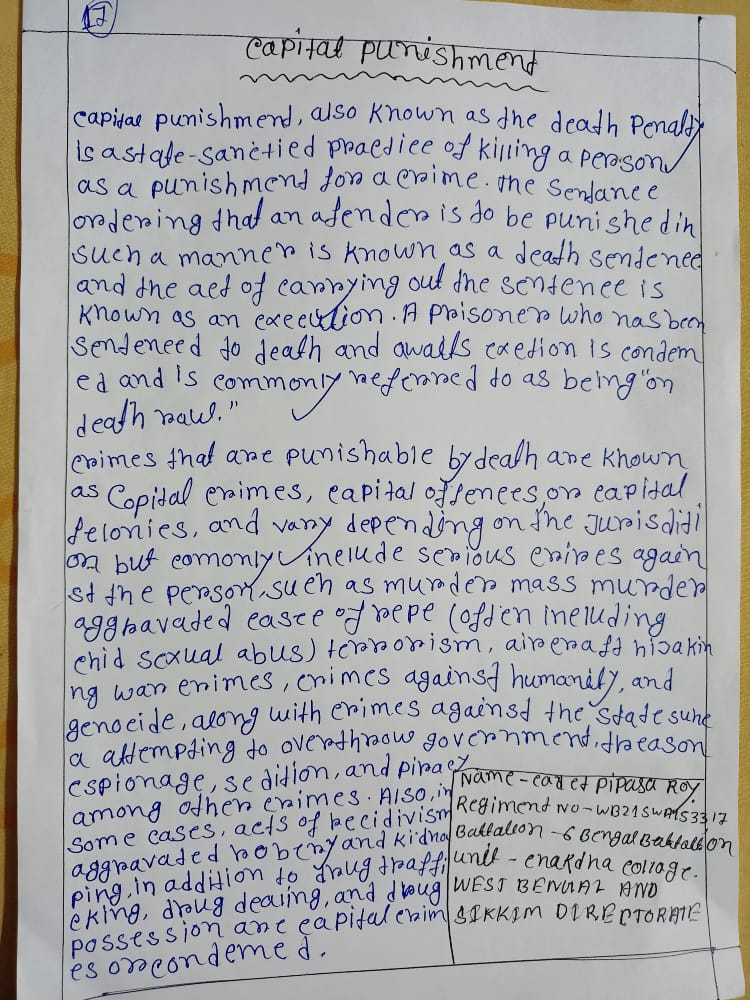 17
Capital Punishment
Capital punishment, also known as the death Penalty
is a state-sanctied practice of killing a person
as a punishment for a crime. The Sentance
ordering that an afender is to be punished in
such a manner is known as a death sentence
and the act of carrying out the sentence is
known as an execution. A prisoner who has been
Sentenced to death and awaits exetion is condem
ed and is commonly referred to as being "on
death raw."
crimes that are punishable by death are known
as Copital crimes, capital offences, or capital
felonies, and vary depending on the Jurisditi
on but comonly include serious crimes again
st the person, such as murder mass murder
aggravated casee of repe (often including
chid sexual abus) terrorism, aircraft hijakin
ng war crimes, crimes against humanity, and
genocide, along with crimes against the state suhc
a attempting to overthrow government, treason
espionage, sedition, and piracy
among other crimes. Also, in
some cases, acts of recidivism
aggravated robery and kidna
ping, in addition to drug traffi
cking, drug dealing, and droug
possession are capital crim
es orcondemed.
Name - cadet Pipasa Roy.
Regiment No - WB21SWA153317
Battaleon - 6 Bengal Battalion
unit - chakdha collage.
WEST BENGAL AND
SIKKIM DIRECTORATE